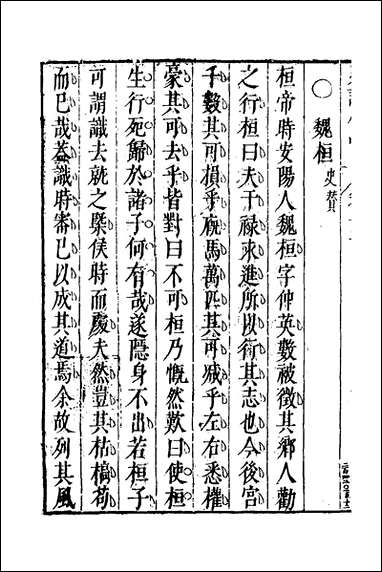 魏桓 史贊
桓帝時安陽人魏桓字仲英數被徵其鄉人勸
之行桓曰夫干禄求進所以行其志也今後宮
千數其可損乎廐馬萬匹其可減乎左右悉權
豪其可去乎皆對曰不可桓乃慨然歎曰使桓
生行死歸於諸子何有哉遂隱身不出若桓子
可謂識去就之槩侯時而處夫然豈其枯槁苟
而已哉葢識時審已以成其道焉余故列其風